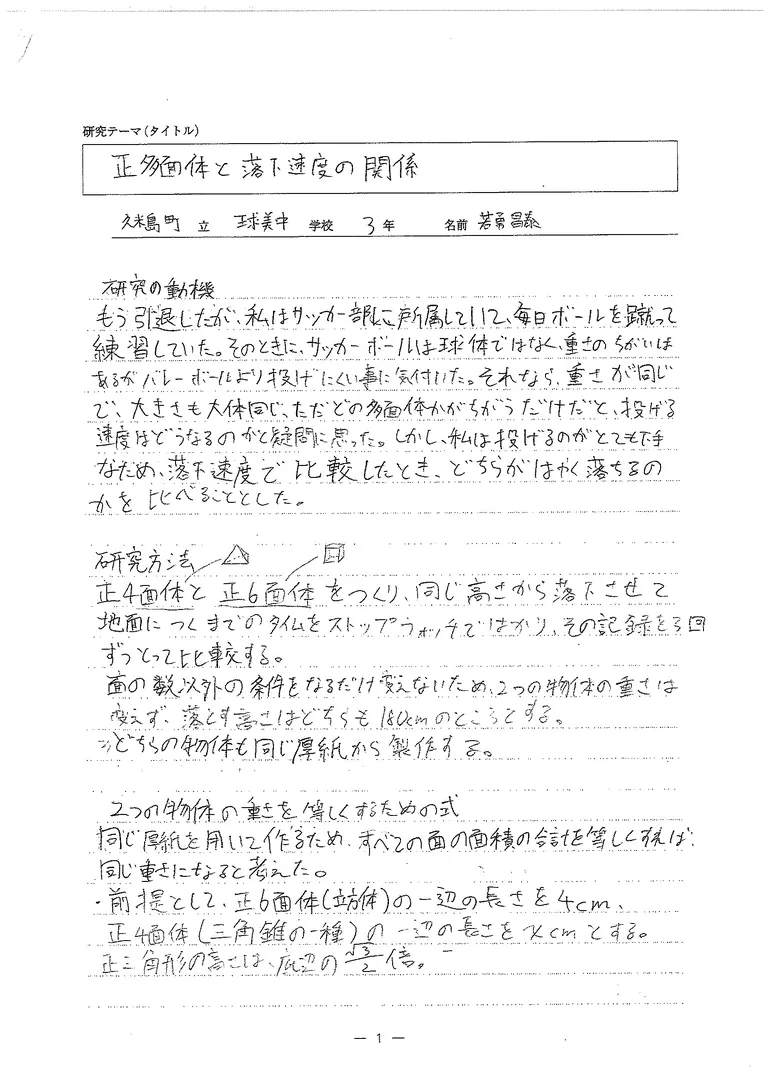 研究テーマ(タイトル)
正多面体と落下速度の関係
久米島町 立 球美中 学校 3 年 名前
研究の動機
もう引退したが、私はサッカー部に所属していて、毎日ボールを蹴って
練習していた。そのときに、サッカーボールは球体ではなく、重さのちがいは
あるがバレーボールより投げにくい事に気付いた。それなら、重さが同じ
で、大きさも大体同じ、ただどの多面体かがちがうだけだと、投げる
速度はどうなるのかと疑問に思った。しかし、私は投げるのがとても下手
なため、落下速度で比較したとき、どちらがはやく落ちるの
かを比べることとした。
研究方法
正4面体と正6面体をつくり、同じ高さから落下させて
地面につくまでのタイムをストップウォッチではかり、その記録を3回
ずつとって比較する。
面の数以外の条件をなるだけ変えないため、2つの物体の重さは
変えず、落とす高さはどちらも180cmのところとする。
どちらの物体も同じ厚紙から製作する。
2つの物体の重さを等しくするための式
同じ厚紙を用いて作るため、すべての面の面積の合計を等しくすれば、
同じ重さになると考えた。
・前提として、正6面体(立方体)の一辺の長さを4cm、
正4面体(三角錐の一種)の一辺の長さをxcmとする。
正三角形の高さは、底辺の√3/2倍。
— 1 —